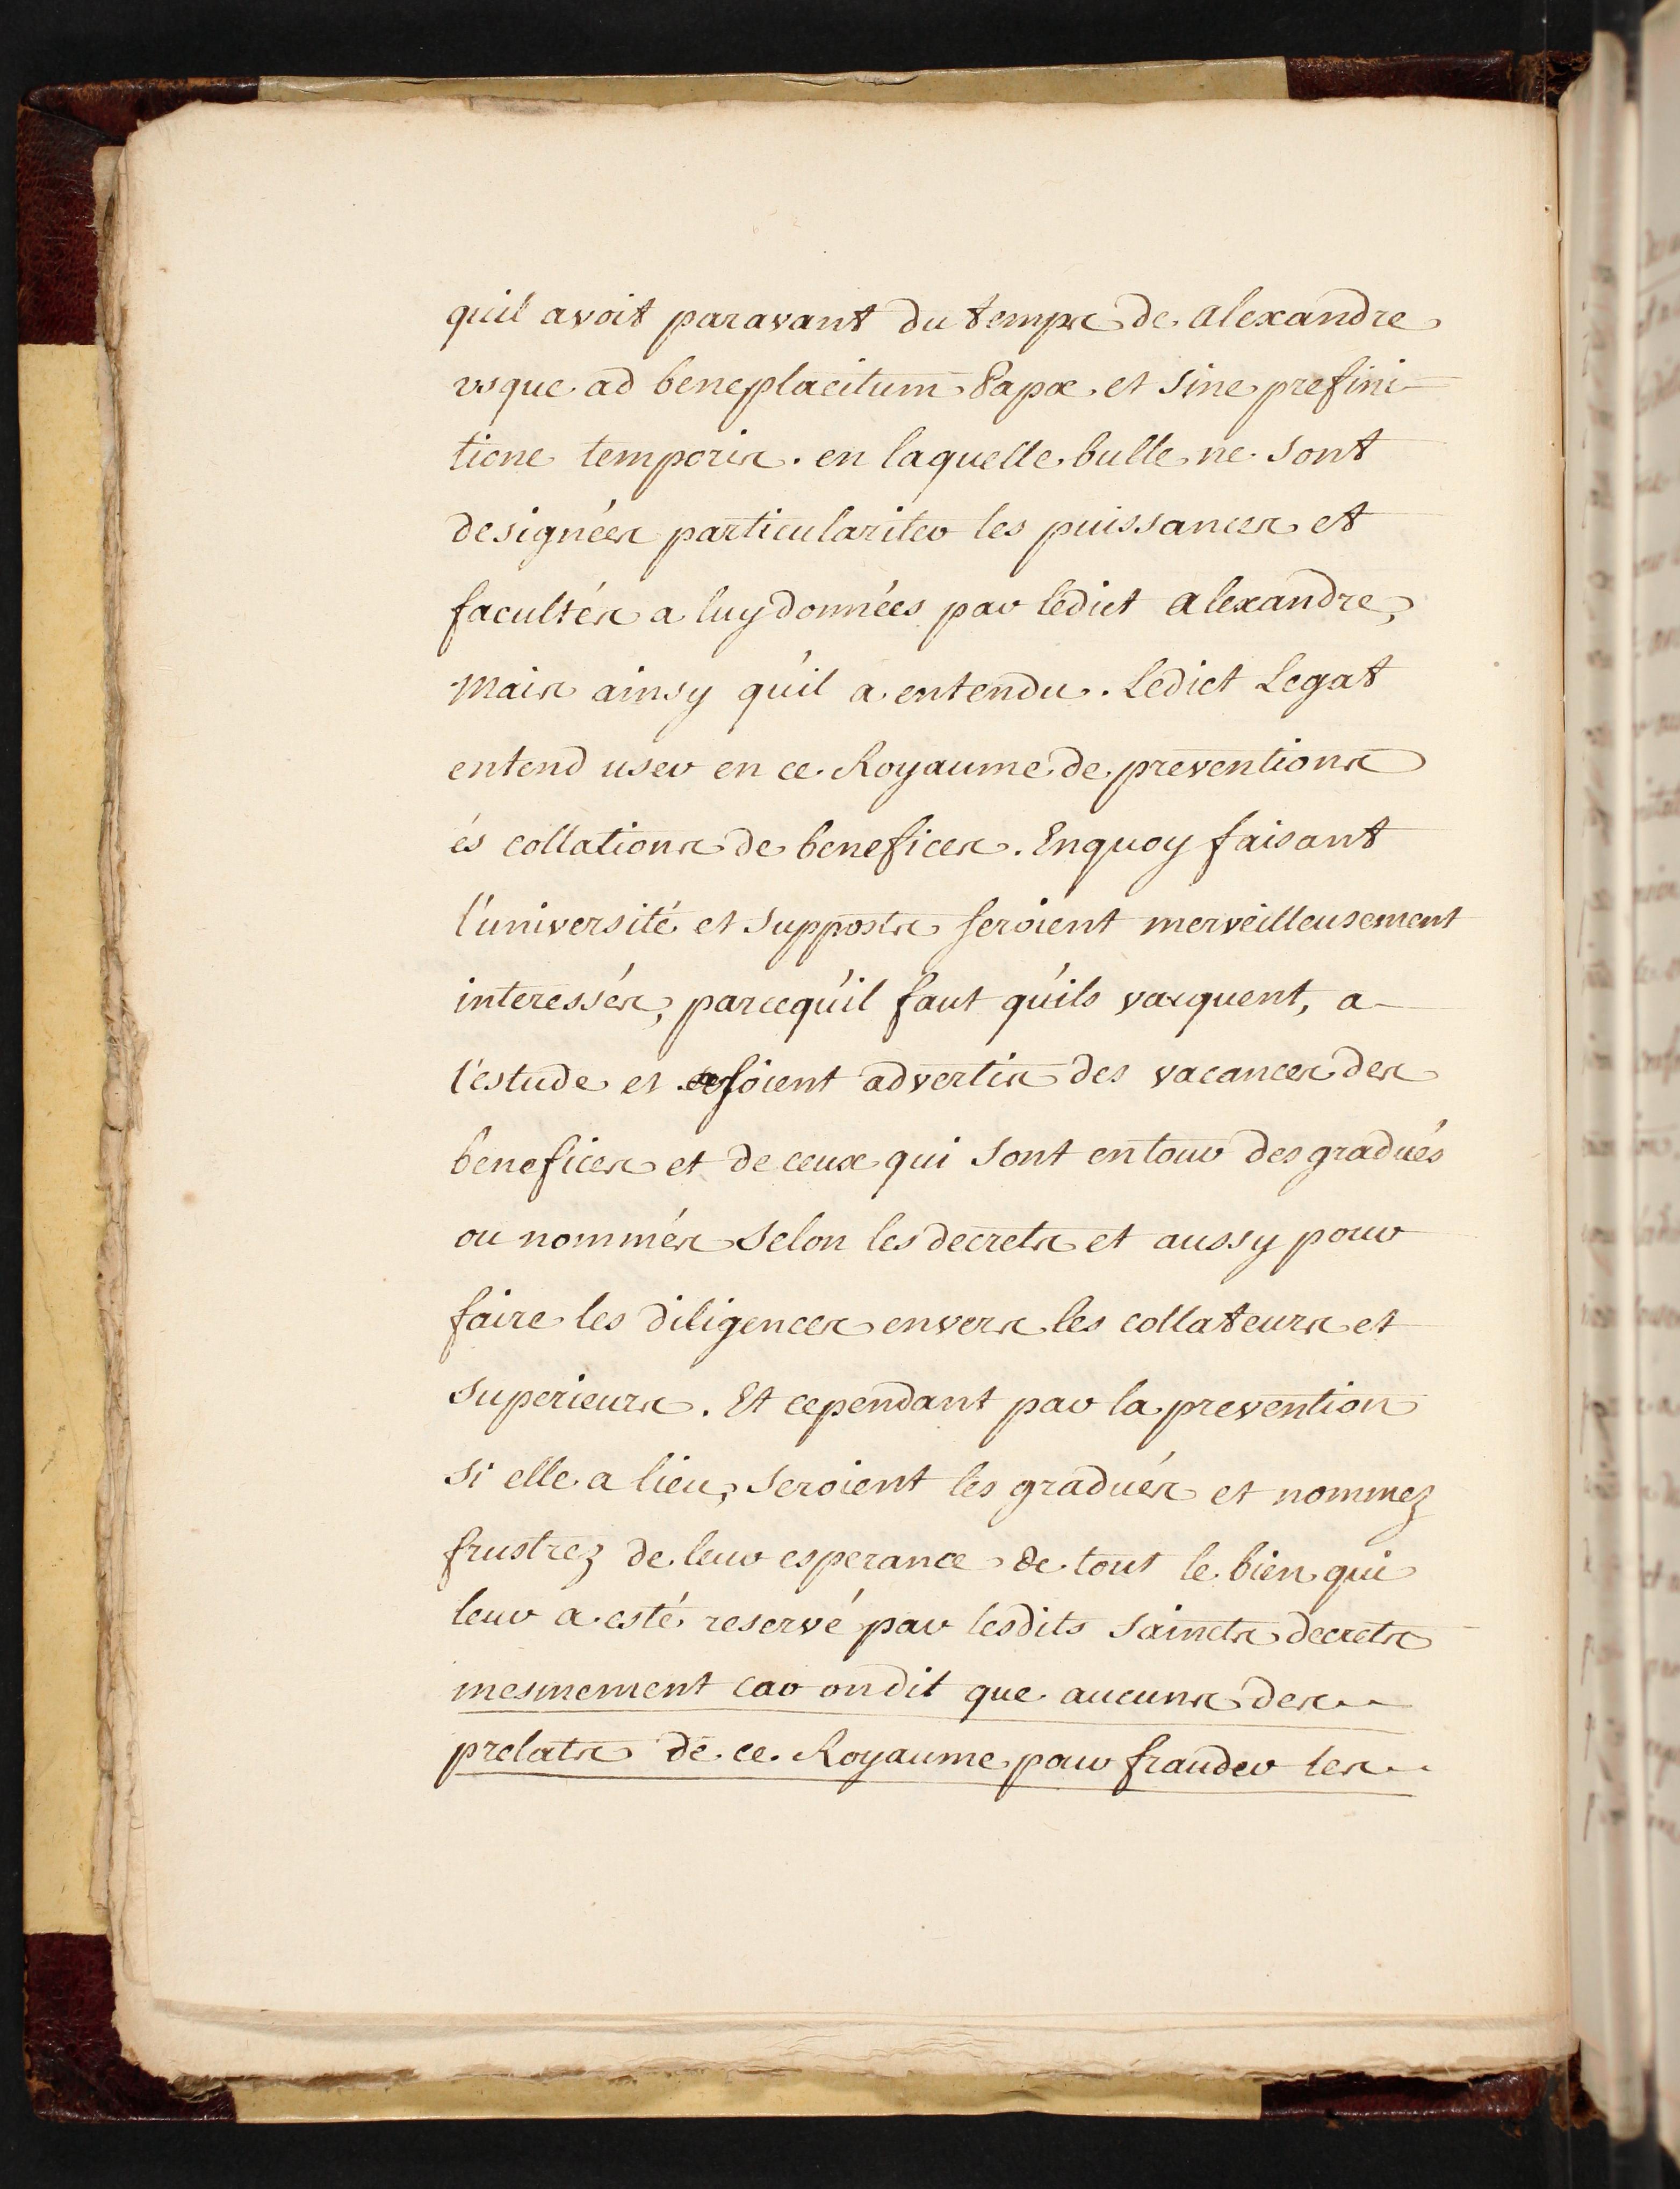 qu'il avoit paravant du temps de alexandre
usque ad beneplacitum Papæ et sine prefini-
tione temporis. en laquelle bulle ne sont
designées particulariter les puissances et
facultés a luy données par ledict alexandre,
mais ainsy qu'il a entendu. Ledict Legat
entend user en ce Royaume de preventions
és collations de benefices. Enquoy faisant
l'université et supposts seroient merveilleusement
interessés, parcequ'il faut qu'ils vacquent, a
l'estude et soient advertis des vacances des
benefices et de ceux qui sont entour des gradués
ou nommés selon les decrets et aussy pour
faire les diligences envers les collateurs et
superieurs. Et cependant par la prevention
si elle a lieu, seroient les gradués et nommez
frustrez de leur esperance de tout le bien qui
leur a esté reservé par lesdits saincts decrets
mesmement car on dit que aucuns des
prelats de ce Royaume pour frauder les